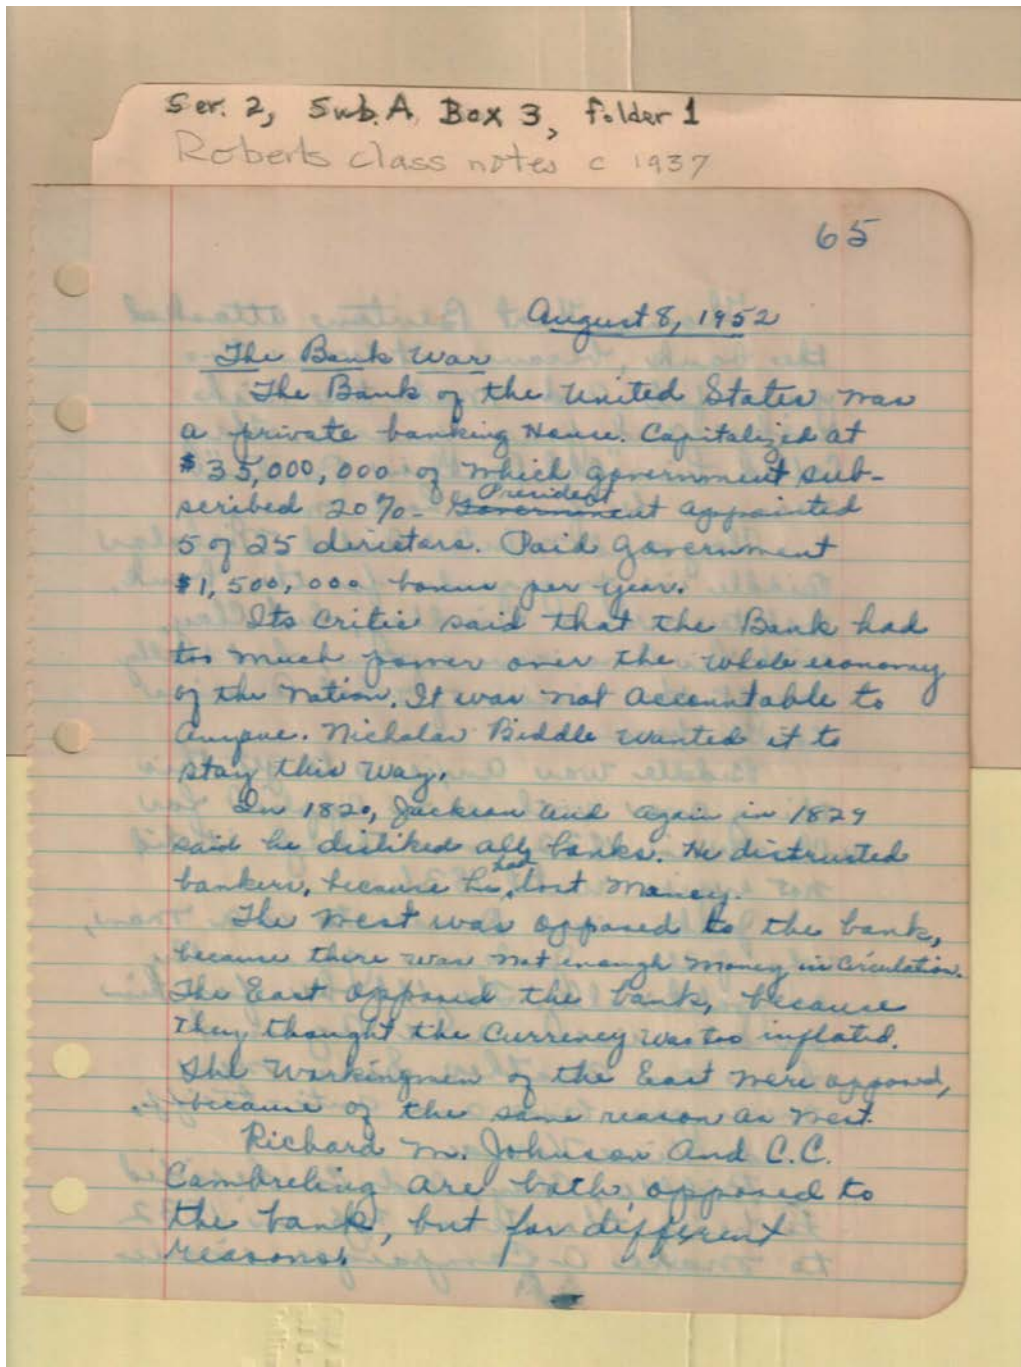 Ser. 2, Sub.A, Box 3, folder 1
Roberts class notes c 1937
65
August 8, 1952
The Bank War
The Bank of the United States was
a private banking House. Capitalized at
$35,000,000 of which government sub-
scribed 20%- Government President appointed
5 of 25 directors. Paid government
$1,500,000 bonus per year.
Its Critic said that the Bank had
too much power over the whole economy
of the Nation. It was not accountable to
anyone. Nicholas Biddle wanted it to
stay this way.
In 1820, Jackson and again in 1829
said he disliked all banks. He distrusted
bankers, because he had lost money.
The West was opposed to the bank,
because there was not enough money in circulation.
The East opposed the bank, because
they thought the currency was too inflated.
The Workingmen of the East were opposed,
because of the same reason as West.
Richard M. Johnson and C.C.
Cambreling are both opposed to
the bank, but for different
reasons.